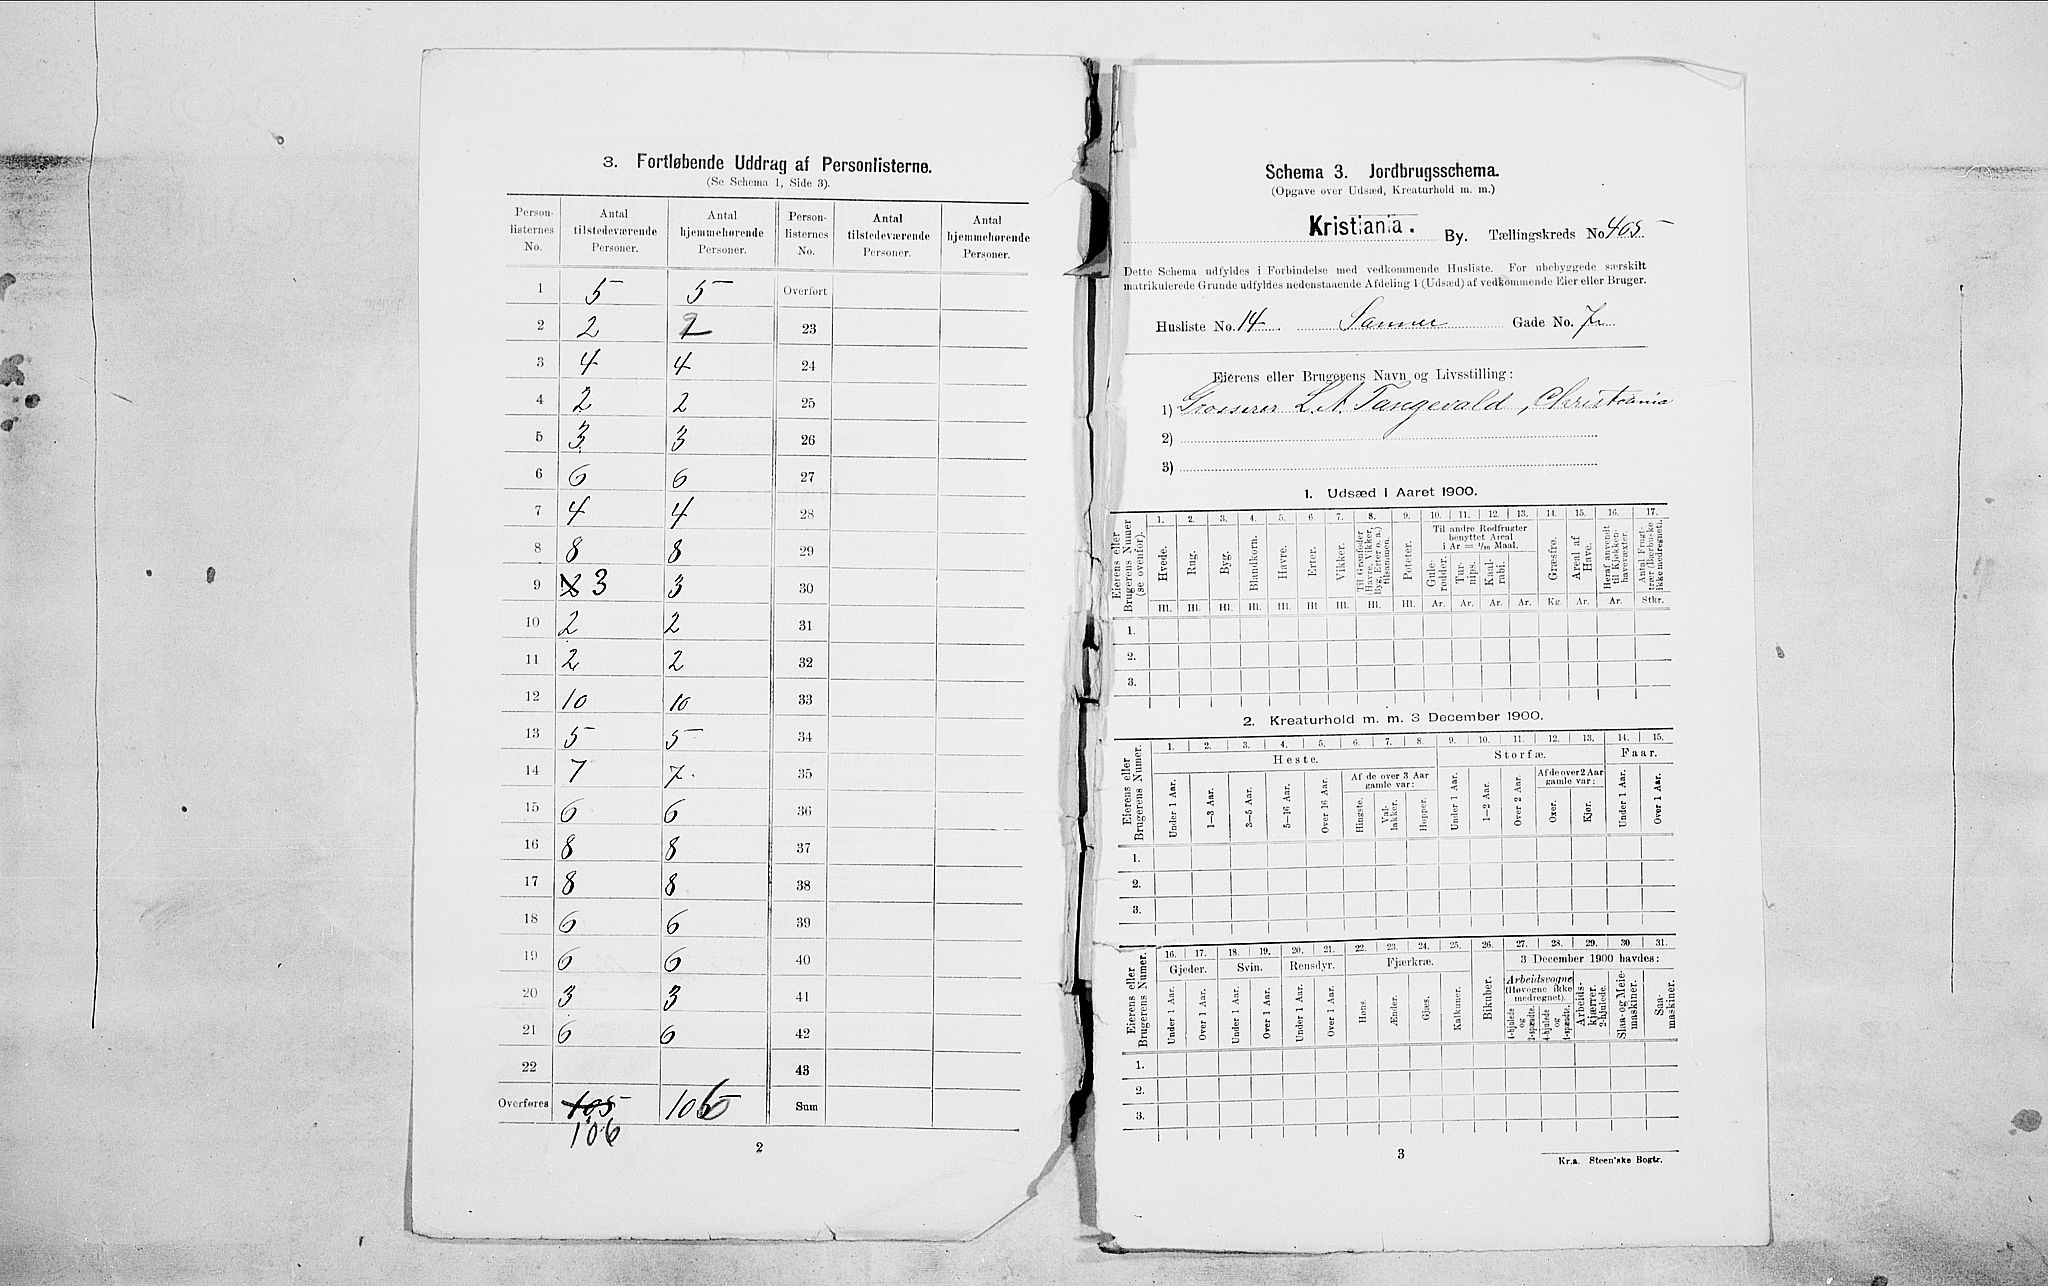 3. Fortløbende Uddrag af Personlisterne.
(Se Schema 1, Side 3).
Person-listernes No. Antal tilstedeværende Personer. Antal hjemmehørende Personer. Person-listernes No. Antal tilstedeværende Personer. Antal hjemmehørende Personer.
1 5 5 Overført
2 2 2 23
3 4 4 24
4 2 2 25
5 3 3 26
6 6 6 27
7 4 4 28
8 8 8 29
9 3 3 30
10 2 2 31
11 2 2 32
12 10 10 33
13 5 5 34
14 7 7 35
15 6 6 36
16 8 8 37
17 8 8 38
18 6 6 39
19 6 6 40
20 3 3 41
21 6 6 42
22 43
Overføres 105 106 Sum
106
2
Schema 3. Jordbrugsschema.
(Opgave over Udsæd, Kreaturhold m. m.)
Kristiania. By. Tællingskreds No. 405
Dette Schema udfyldes i Forbindelse med vedkommende Husliste. For ubebyggede særskilt
matrikulerede Grunde udfyldes nedenstaaende Afdeling 1 (Udsæd) af vedkommende Eier eller Bruger.
Husliste No. 14 Sanner Gade No.
Eierens eller Brugerens Navn og Livsstilling:
1) Grosserer L. A. Tangevald, Christiania
2)
3)
1. Udsæd i Aaret 1900.
Eierens eller Brugerens Numer (se ovenfor).
1. 2. 3. 4. 5. 6. 7. 8. 9. 10. 11. 12. 13. 14. 15. 16. 17.
Til andre Rodfrugter benyttet Areal i Ar = 1/10 Maal.
Hvede. Rug. Byg. Blandkorn. Havre. Erter. Vikker. Til Grønfoder Havre, Vikker, Byg, Erter o. a.) tilsammen. Poteter. Gule-rødder. Tur-nips. Kaal-rabi. Græsfrø. Areal af Have. Heraf anvendt til Kjøkken-havevæxter. Antal Frugt-trær (Bærbuske ikke medregnet).
Hl. Hl. Hl. Hl. Hl. Hl. Hl. Hl. Hl. Ar. Ar. Ar. Ar. Kg. Ar. Ar. Stkr.
1.
2.
3.
2. Kreaturhold m. m. 3 December 1900.
Eierens eller Brugerens Numer.
1. 2. 3. 4. 5. 6. 7. 8. 9. 10. 11. 12. 13. 14. 15.
Heste. Storfæ. Faar.
Af de over 3 Aar gamle var: Af de over 2 Aar gamle var:
Under 1 Aar. 1—3 Aar. 3—5 Aar. 5—16 Aar. Over 16 Aar. Hingste. Val-lakker. Hopper. Under 1 Aar. 1—2 Aar. Over 2 Aar. Oxer. Kjør. Under 1 Aar. Over 1 Aar.
1.
2.
3.
Eierens eller Brugerens Numer.
16. 17. 18. 19. 20. 21. 22. 23. 24. 25. 26. 27. 28. 29. 30 31.
Gjeder. Svin. Rensdyr. Fjærkræ. Bikuber. 3 December 1900 havdes:
Arbeidsvogne (Høvogne ikke medregnet).
Under 1 Aar. Over 1 Aar. Under 1 Aar. Over 1 Aar. Under 1 Aar. Over 1 Aar. Høns. Ænder. Gjæs. Kalkuner. 4-hjulede og 2-spændte. 4-hjulede og 1-spændte. Arbeids-kjærrer, 2-hjulede. Slaa- og Meie-maskiner. Saa-maskiner.
1.
2.
3.
3
Kr.a. Steen'ske Bogtr.